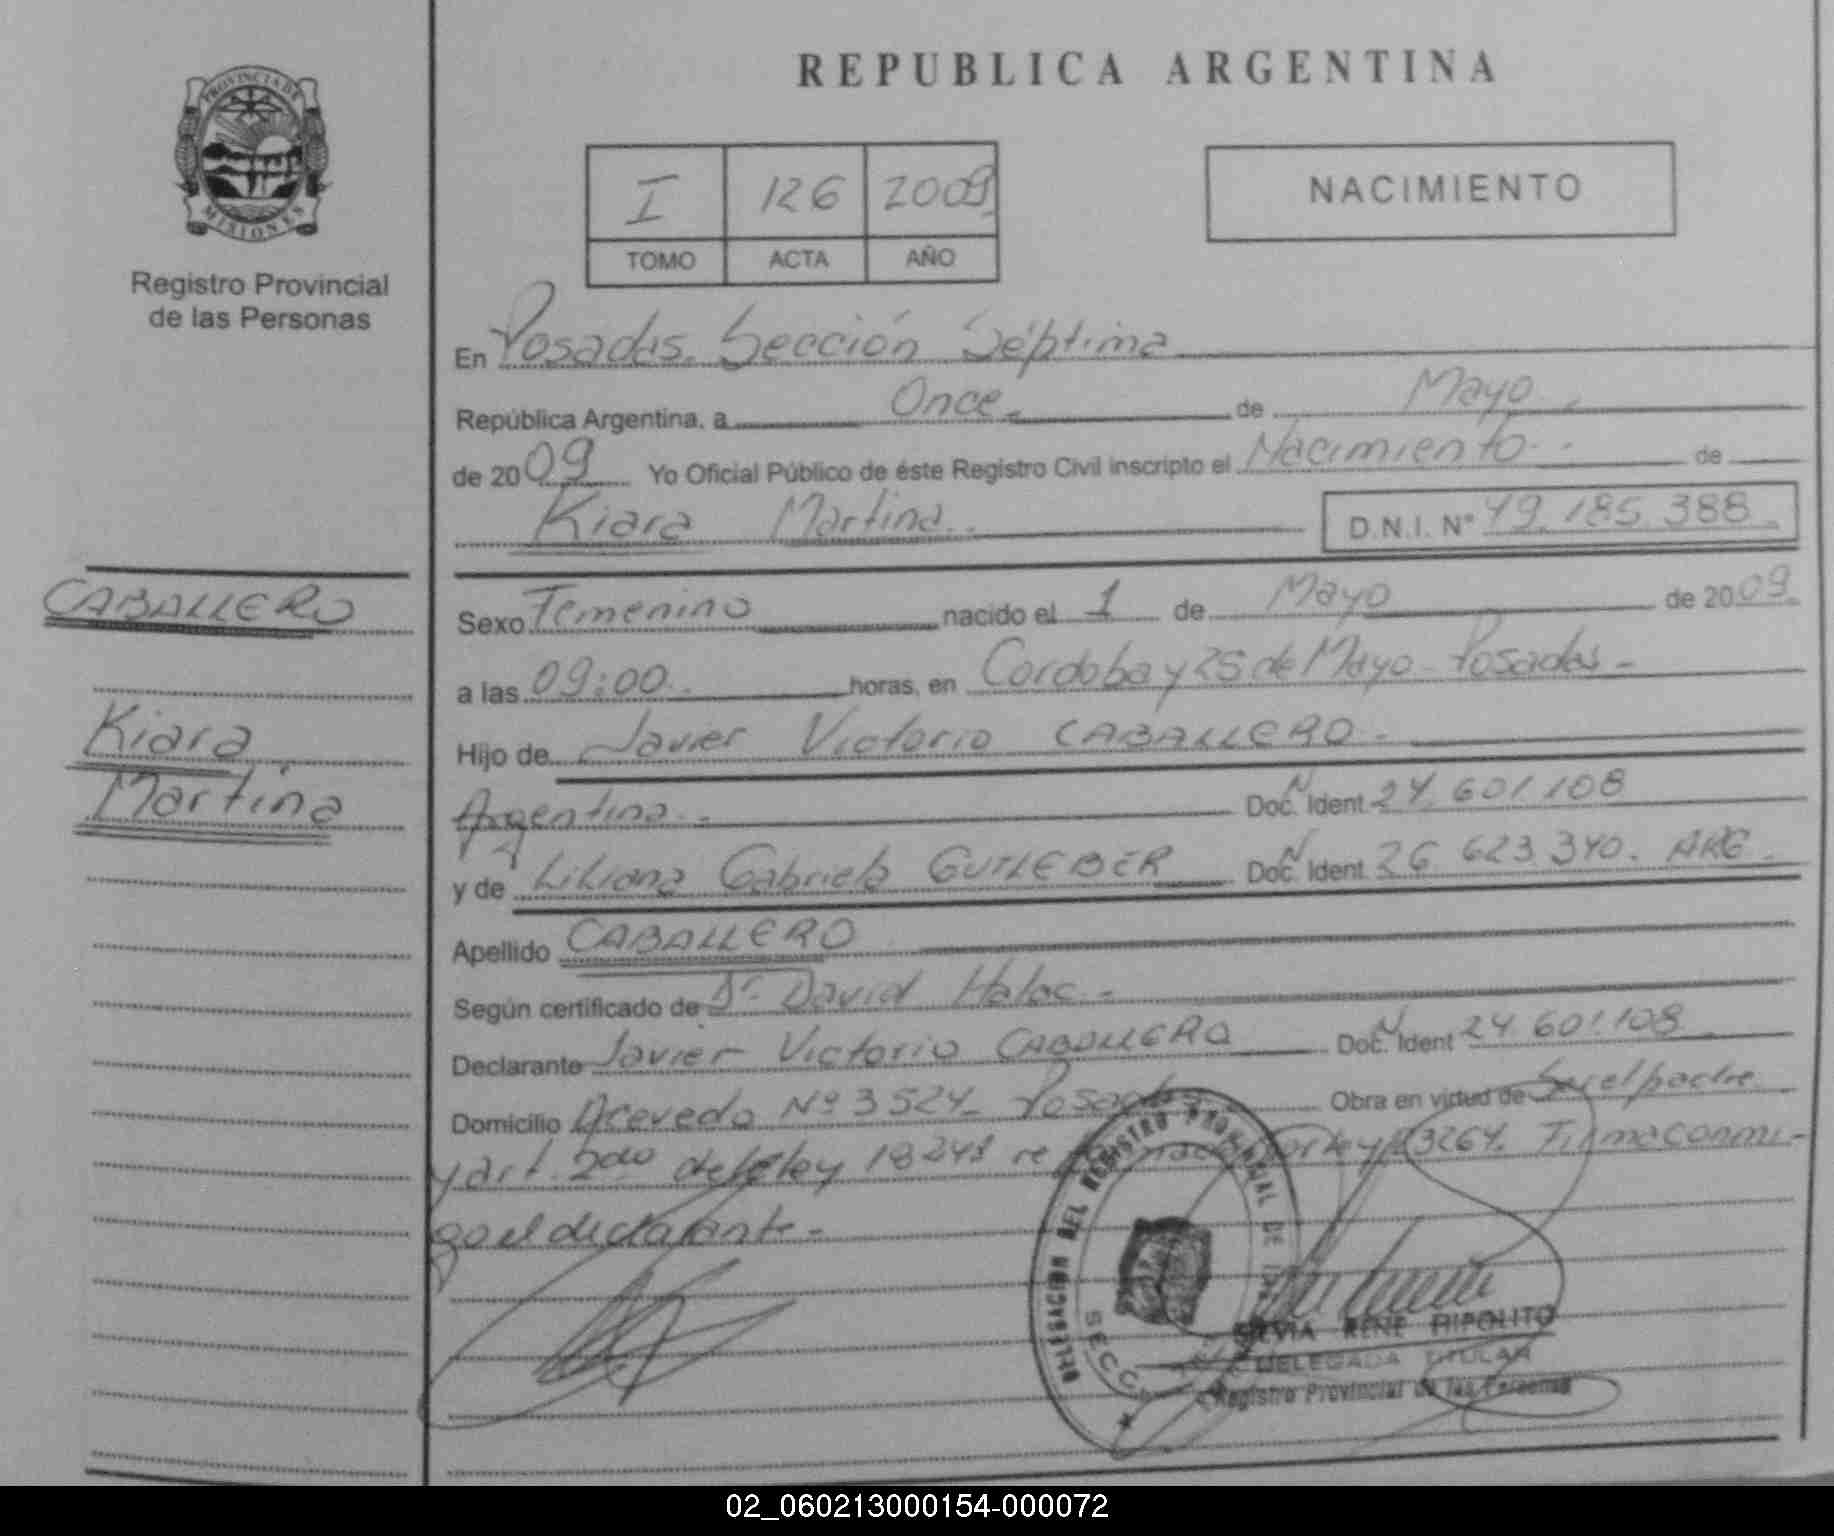 PROVINCIA DE
MISIONES
Registro Provincial
de las Personas
REPUBLICA ARGENTINA
I 126 2009
TOMO ACTA AÑO
NACIMIENTO
En Posadas. Sección Séptima
República Argentina, a Once de Mayo
de 2009 Yo Oficial Público de éste Registro Civil inscripto el Nacimiento de
Kiara Martina D.N.I. Nº 49.185.388
CABALLERO
Kiara
Martina
Sexo Femenino nacido el 1 de Mayo de 2009
a las 09:00 horas, en Cordoba y 25 de Mayo - Posadas -
Hijo de Javier Victorio CABALLERO -
Argentina. - Doc. Ident. 24.601.108
y de Liliana Gabriela Doc. Ident. 26.623.340. ARG.
Apellido CABALLERO
Según certificado de Dr. David Halac -
Declarante Javier Victorio CABALLERO Doc. Ident 24.601.108
Domicilio Acevedo Nº 3524 - Posadas Obra en virtud de Ser el padre
y art. 2do de la ley 18248 por ley 23264. Firma conmi-
go el declarante -
DELEGACION DEL REGISTRO PROVINCIAL DE
SECC.
SILVIA RENE HIPOLITO
DELEGADA TITULAR
Registro Provincial de las Personas
02_060213000154-000072